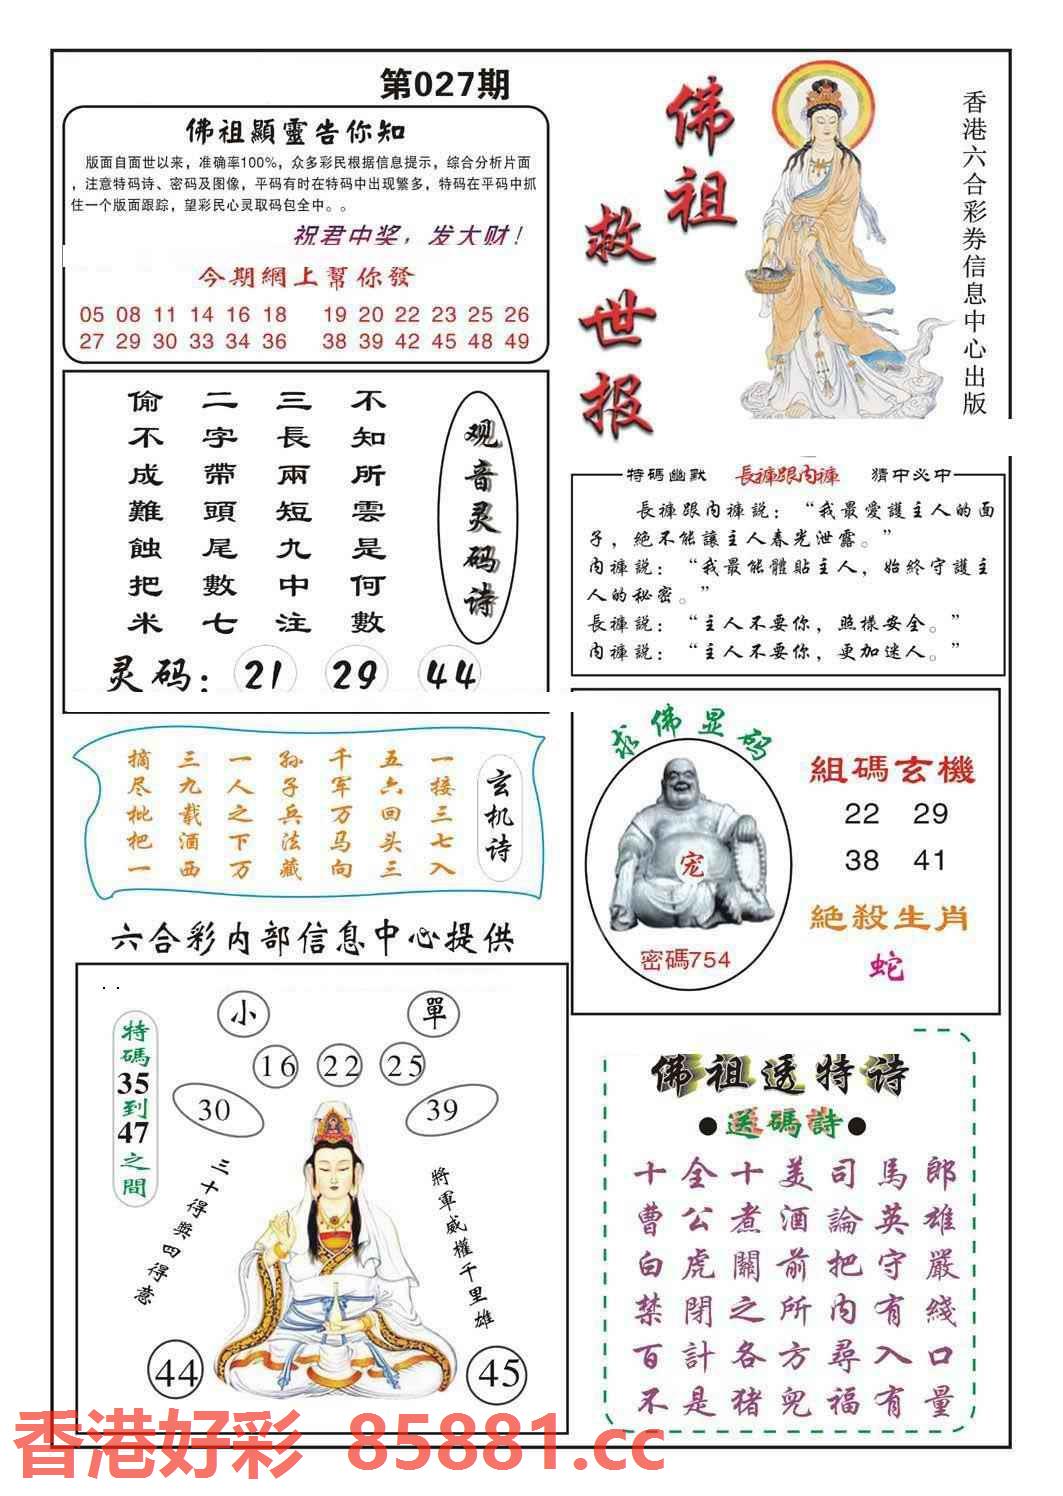 第027期
佛祖顯靈告你知
版面自面世以来，准确率100%，众多彩民根据信息提示，综合分析片面
，注意特码诗、密码及图像，平码有时在特码中出现繁多，特码在平码中抓
住一个版面跟踪，望彩民心灵取码包全中。。
祝君中奖，发大财！
今期網上幫你發
05 08 11 14 16 18 19 20 22 23 25 26
27 29 30 33 34 36 38 39 42 45 48 49
佛祖
救世报
香港六合彩券信息中心出版
观音灵码诗
不知所雲是何數
三長兩短九中注
二字帶頭尾數七
偷不成難蝕把米
灵码：21 29 44
特碼幽默 長褲跟内褲 猜中必中
長褲跟内褲説：“我最愛護主人的面
子，絶不能讓主人春光泄露。”
内褲説：“我最能體貼主人，始終守護主
人的秘密。”
長褲説：“主人不要你，照樣安全。”
内褲説：“主人不要你，更加迷人。”
玄机诗
一接三七入
五六回头三
千军万马向
孙子兵法藏
一人之下万
三九载酒西
摘尽枇杷一
求佛显码
宠
密碼754
組碼玄機
22 29
38 41
絕殺生肖
蛇
六合彩内部信息中心提供
小
單
16 22 25
30
39
特碼35到47之間
三十得獎四得意
將軍威權千里雄
44
45
佛祖透特诗
●送碼詩●
十全十美司馬郎
曹公煮酒論英雄
白虎關前把守嚴
禁閉之所内有綫
百計各方尋入口
不是猪兜福有量
香港好彩 85881.cc